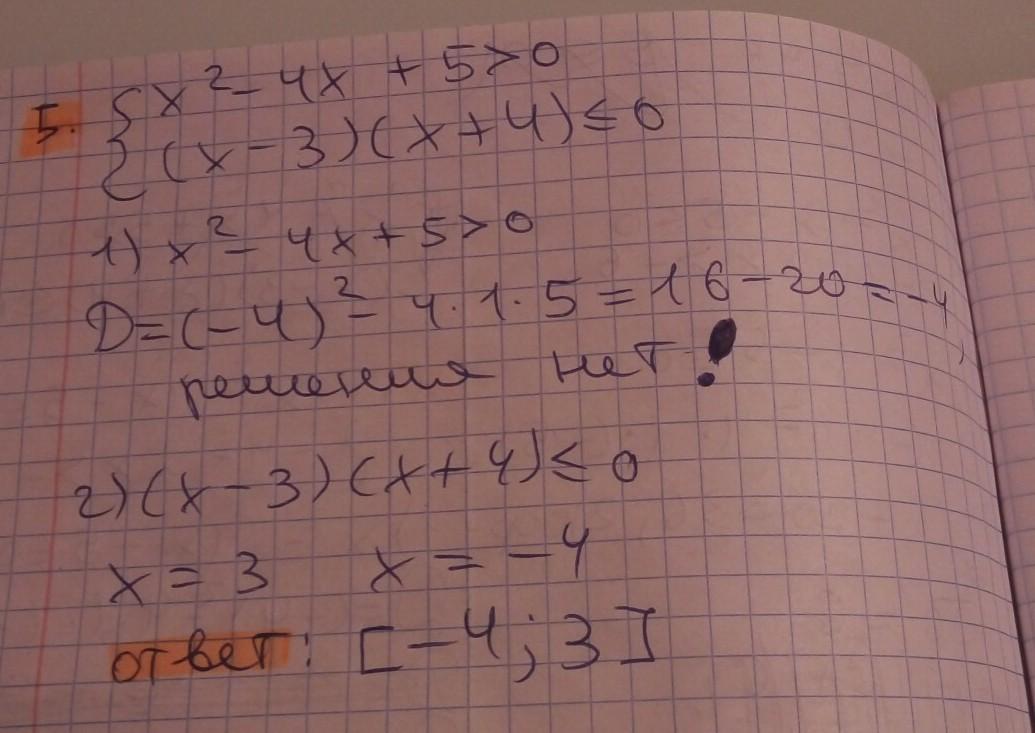 5. { x² - 4x + 5 > 0
{ (x - 3)(x + 4) ≤ 0
1) x² - 4x + 5 > 0
D = (-4)² - 4·1·5 = 16 - 20 = -4,
решения нет!
2) (x - 3)(x + 4) ≤ 0
x = 3 x = -4
ответ: [-4; 3]